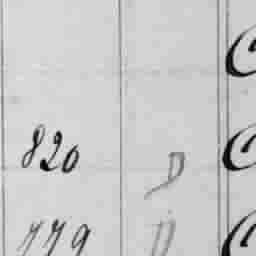 C
820 D C
779 D C